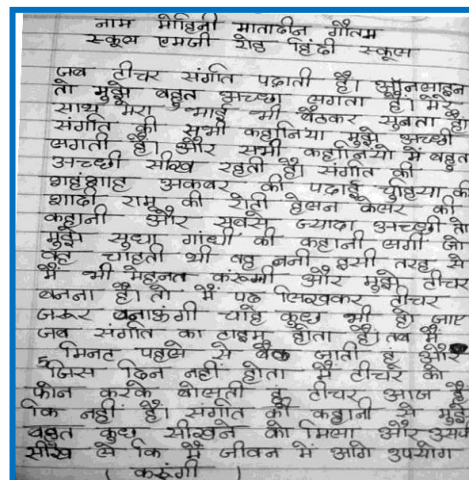 नाम मोहिनी मातादीन गौतम
स्कूल एमजी रोड हिंदी स्कूल
जब टीचर संगति पढ़ाती है। ऑनलाइन
तो मुझे बहुत अच्छा लगता है। मेरे
साथ मेरा भाई भी बैठकर सुनता है।
संगति की सभी कहानिया मुझे अच्छी
लगती है। और सभी कहानियो में बहुत
अच्छी सीख रहती है। संगति की
शहंशाह अकबर की पढाई चुहिया की
शादी रामु की रोती हेलन केलर की
कहानी और सबसे ज्यादा अच्छी तो
मुझे सुधा गांधी की कहानी लगी जो
वह चाहती थी वह बनी इसी तरह से
मैं भी मेहनत करूंगी और मुझे टीचर
बनना है। तो मैं पढ़ लिखकर टीचर
जरूर बनाऊगी चाहे कुछ भी हो जाए
जब संगति का टाइम होता है। तब मैं
5 मिनट पहले से बैठ जाती हूं और
जिस दिन नहीं होता मैं टीचर को
फोन करके बोलती हूं टीचर आज है
कि नहीं है। संगति की कहानी से मुझे
बहुत कुछ सीखने को मिला और उसमें
सीख ले कि मैं जीवन में आगे उपयोग
( करूंगी )